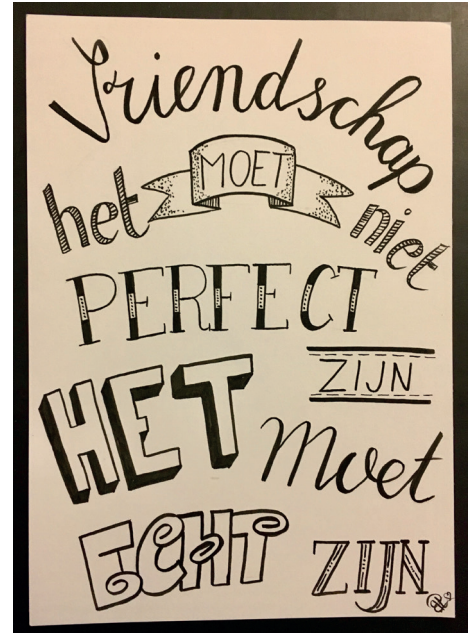 Vriendschap
het MOET niet
PERFECT
ZIJN
HET Moet
ECHT ZIJN